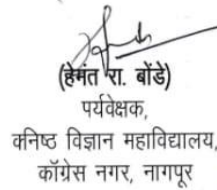 (हेमंत रा. बोंडे)
पर्यवेक्षक,
कनिष्ठ विज्ञान महाविद्यालय,
काँग्रेस नगर, नागपूर